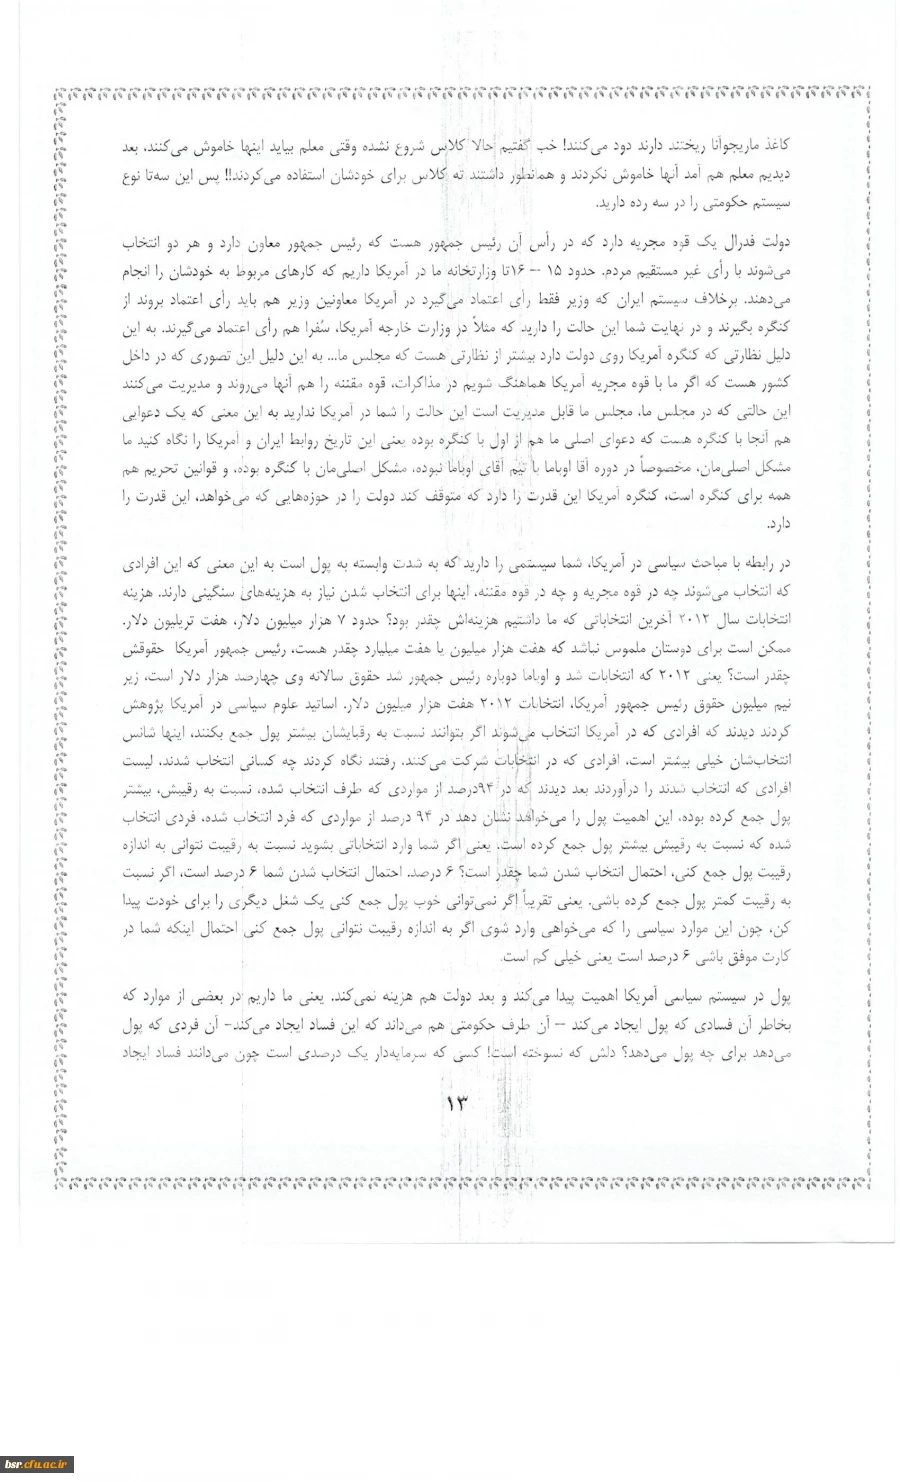 کاغذ ماریجوآنا ریختند دارند دود می‌کنند! خب گفتیم حالا کلاس شروع نشده وقتی معلم بیاید اینها خاموش می‌کنند، بعد
دیدیم معلم هم آمد آنها خاموش نکردند و همانطور داشتند ته کلاس برای خودشان استفاده می‌کردند!! پس این سه‌تا نوع
سیستم حکومتی را در سه رده دارید.
دولت فدرال یک قوه مجریه دارد که در رأس آن رئیس جمهور هست که رئیس جمهور معاون دارد و هر دو انتخاب
می‌شوند با رأی غیر مستقیم مردم. حدود ۱۵ – ۱۶تا وزارتخانه ما در آمریکا داریم که کارهای مربوط به خودشان را انجام
می‌دهند. برخلاف سیستم ایران که وزیر فقط رأی اعتماد می‌گیرد در آمریکا معاونین وزیر هم باید رأی اعتماد بروند از
کنگره بگیرند و در نهایت شما این حالت را دارید که مثلاً در وزارت خارجه آمریکا، سُفرا هم رأی اعتماد می‌گیرند. به این
دلیل نظارتی که کنگره آمریکا روی دولت دارد بیشتر از نظارتی هست که مجلس ما... به این دلیل این تصوری که در داخل
کشور هست که اگر ما با قوه مجریه آمریکا هماهنگ شویم در مذاکرات، قوه مقننه را هم آنها می‌روند و مدیریت می‌کنند
این حالتی که در مجلس ما، مجلس ما قابل مدیریت است این حالت را شما در آمریکا ندارید به این معنی که یک دعوایی
هم آنجا با کنگره هست که دعوای اصلی ما هم از اول با کنگره بوده یعنی این تاریخ روابط ایران و آمریکا را نگاه کنید ما
مشکل اصلی‌مان، مخصوصاً در دوره آقا اوباما با تیم آقای اوباما نبوده، مشکل اصلی‌مان با کنگره بوده، و قوانین تحریم هم
همه برای کنگره است، کنگره آمریکا این قدرت را دارد که متوقف کند دولت را در حوزه‌هایی که می‌خواهد، این قدرت را
دارد.
در رابطه با مباحث سیاسی در آمریکا، شما سیستمی را دارید که به شدت وابسته به پول است به این معنی که این افرادی
که انتخاب می‌شوند چه در قوه مجریه و چه در قوه مقننه، اینها برای انتخاب شدن نیاز به هزینه‌های سنگینی دارند. هزینه
انتخابات سال ۲۰۱۲ آخرین انتخاباتی که ما داشتیم هزینه‌اش چقدر بود؟ حدود ۷ هزار میلیون دلار، هفت تریلیون دلار.
ممکن است برای دوستان ملموس نباشد که هفت هزار میلیون یا هفت میلیارد چقدر هست، رئیس جمهور آمریکا حقوقش
چقدر است؟ یعنی ۲۰۱۲ که انتخابات شد و اوباما دوباره رئیس جمهور شد حقوق سالانه وی چهارصد هزار دلار است، زیر
نیم میلیون حقوق رئیس جمهور آمریکا، انتخابات ۲۰۱۲ هفت هزار میلیون دلار. اساتید علوم سیاسی در آمریکا پژوهش
کردند دیدند که افرادی که در آمریکا انتخاب می‌شوند اگر بتوانند نسبت به رقبایشان بیشتر پول جمع بکنند، اینها شانس
انتخاب‌شان خیلی بیشتر است، افرادی که در انتخابات شرکت می‌کنند. رفتند نگاه کردند چه کسانی انتخاب شدند، لیست
افرادی که انتخاب شدند را درآوردند بعد دیدند که در ۹۴درصد از مواردی که طرف انتخاب شده، نسبت به رقیبش، بیشتر
پول جمع کرده بوده، این اهمیت پول را می‌خواهد نشان دهد در ۹۴ درصد از مواردی که فرد انتخاب شده، فردی انتخاب
شده که نسبت به رقیبش بیشتر پول جمع کرده است. یعنی اگر شما وارد انتخاباتی بشوید نسبت به رقیبت نتوانی به اندازه
رقیبت پول جمع کنی، احتمال انتخاب شدن شما چقدر است؟ ۶ درصد. احتمال انتخاب شدن شما ۶ درصد است، اگر نسبت
به رقیبت کمتر پول جمع کرده باشی. یعنی تقریباً اگر نمی‌توانی خوب پول جمع کنی یک شغل دیگری را برای خودت پیدا
کن، چون این موارد سیاسی را که می‌خواهی وارد شوی اگر به اندازه رقیبت نتوانی پول جمع کنی احتمال اینکه شما در
کارت موفق باشی ۶ درصد است یعنی خیلی کم است.
پول در سیستم سیاسی آمریکا اهمیت پیدا می‌کند و بعد دولت هم هزینه نمی‌کند. یعنی ما داریم در بعضی از موارد که
بخاطر آن فسادی که پول ایجاد می‌کند – آن طرف حکومتی هم می‌داند که این فساد ایجاد می‌کند- آن فردی که پول
می‌دهد برای چه پول می‌دهد؟ دلش که نسوخته است! کسی که سرمایه‌دار یک درصدی است چون می‌دانند فساد ایجاد
۱۳
bsr.cfu.ac.ir